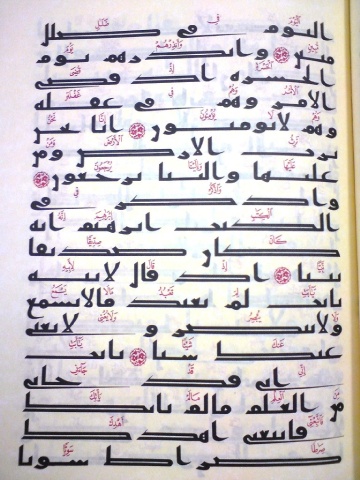 اليوم في ضلل
مبين وانذرهم يوم
الحسرة اذ قضي
الامر وهم في غفلة
وهم لا يؤمنون انا نحن
نرث الارض ومن
عليها والينا يرجعون
واذكر في
الكتب ابرهيم انه
كان صديقا
نبيا اذ قال لابيه
يابت لم تعبد ما لا يسمع
ولا يبصر ولا يغني
عنك شيا يابت
اني قد جاني
من العلم ما لم ياتك
فاتبعني اهدك
صرطا سويا